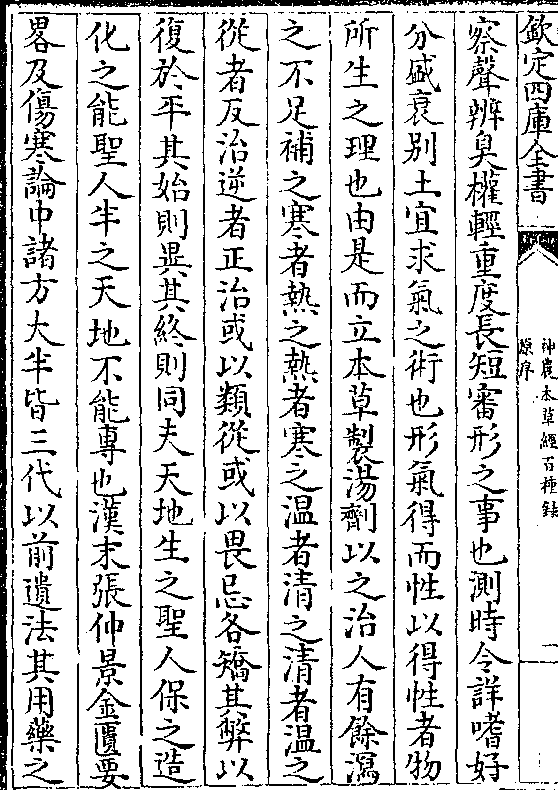 欽定四庫全書
神農本草經百種錄
原序
一
察聲辨臭權輕重度長短審形之事也測時令詳嗜好
分盛衰别土宜求氣之術也形氣得而性以得性者物
所生之理也由是而立本草製湯劑以之治人有餘瀉
之不足補之寒者熱之熱者寒之温者清之清者温之
從者反治逆者正治或以類從或以畏忌各矯其弊以
復於平其始則異其終則同夫天地生之聖人保之造
化之能聖人半之天地不能專也漢末張仲景金匱要
畧及傷寒論中諸方大半皆三代以前遺法其用藥之